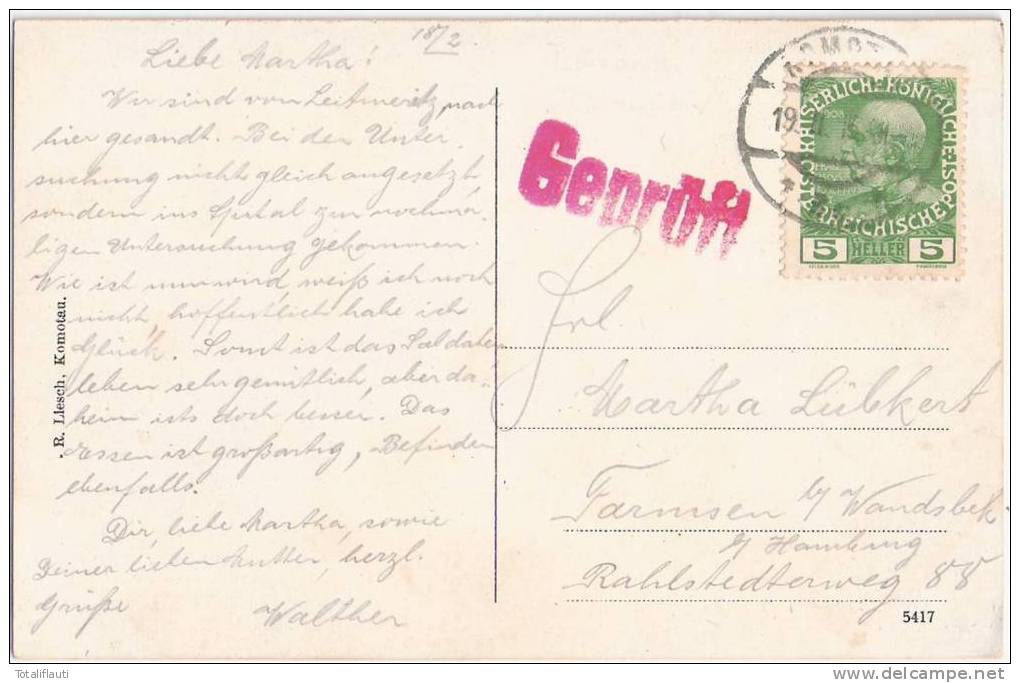 18/2.
Liebe Martha!
Wir sind von Leitmeritz nach
hier gesandt. Bei der Unter-
suchung nicht gleich angesetzt
sondern ins Spital zur nochma-
ligen Untersuchung gekommen.
Wie ist nun wird, weiß ich noch
nicht, hoffentlich habe ich
Glück. Sonst ist das Soldaten
leben sehr gemütlich, aber da-
heim ists doch besser. Das
Essen ist großartig, Befinden
ebenfalls.
Dir, liebe Martha, sowie
Deiner lieben Mutter, herzl.
Grüße
Walther
R. Liesch, Komotau.
Geprüft
KOMOT
19. II.
KAISERLICHE KÖNIGLICHE
ÖSTERREICHISCHE POST
5 HELLER 5
Frl.
Martha Lübkert
Farmsen b/ Wandsbek
b/ Hamburg
Rahlstedterweg 88
5417
Totaliflauti
www.delcampe.net